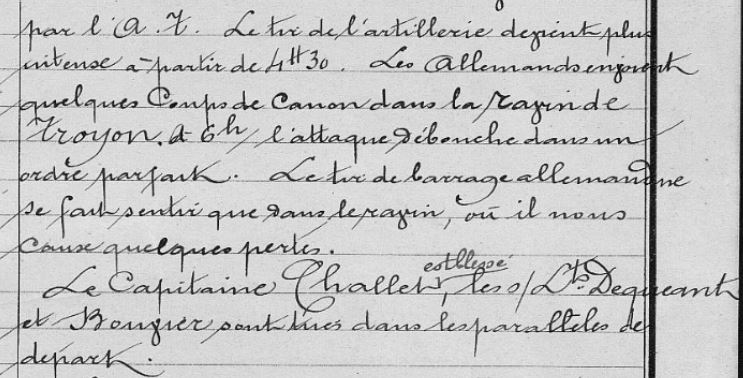 par l'A.T. Le tir de l'artillerie devient plus
intense à partir de 4H30. Les Allemands envoient
quelques Coups de Canon dans la ravin de
Troyon. A 6h, l'attaque débouche dans un
ordre parfait. Le tir de barrage allemand ne
se fait sentir que dans le ravin, où il nous
cause quelques pertes.
est blessé
Le Capitaine Challet, les s/Lts Dequeant
et Bougier sont tués dans les parallèles de
départ.